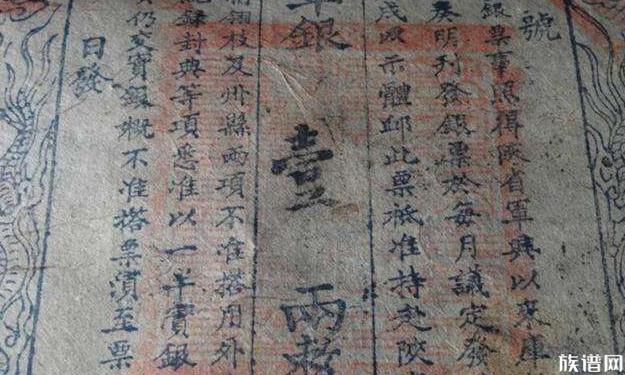 號
銀票事照得陝省軍興以來庫
奏明刊發銀票於每月議定發
成以示體卹此票祗准持赴陝
銀壹兩
及州縣兩項不准搭用外
封典等項悉准以一半實銀
仍交實銀概不准搭票湏至票
日發
族谱网